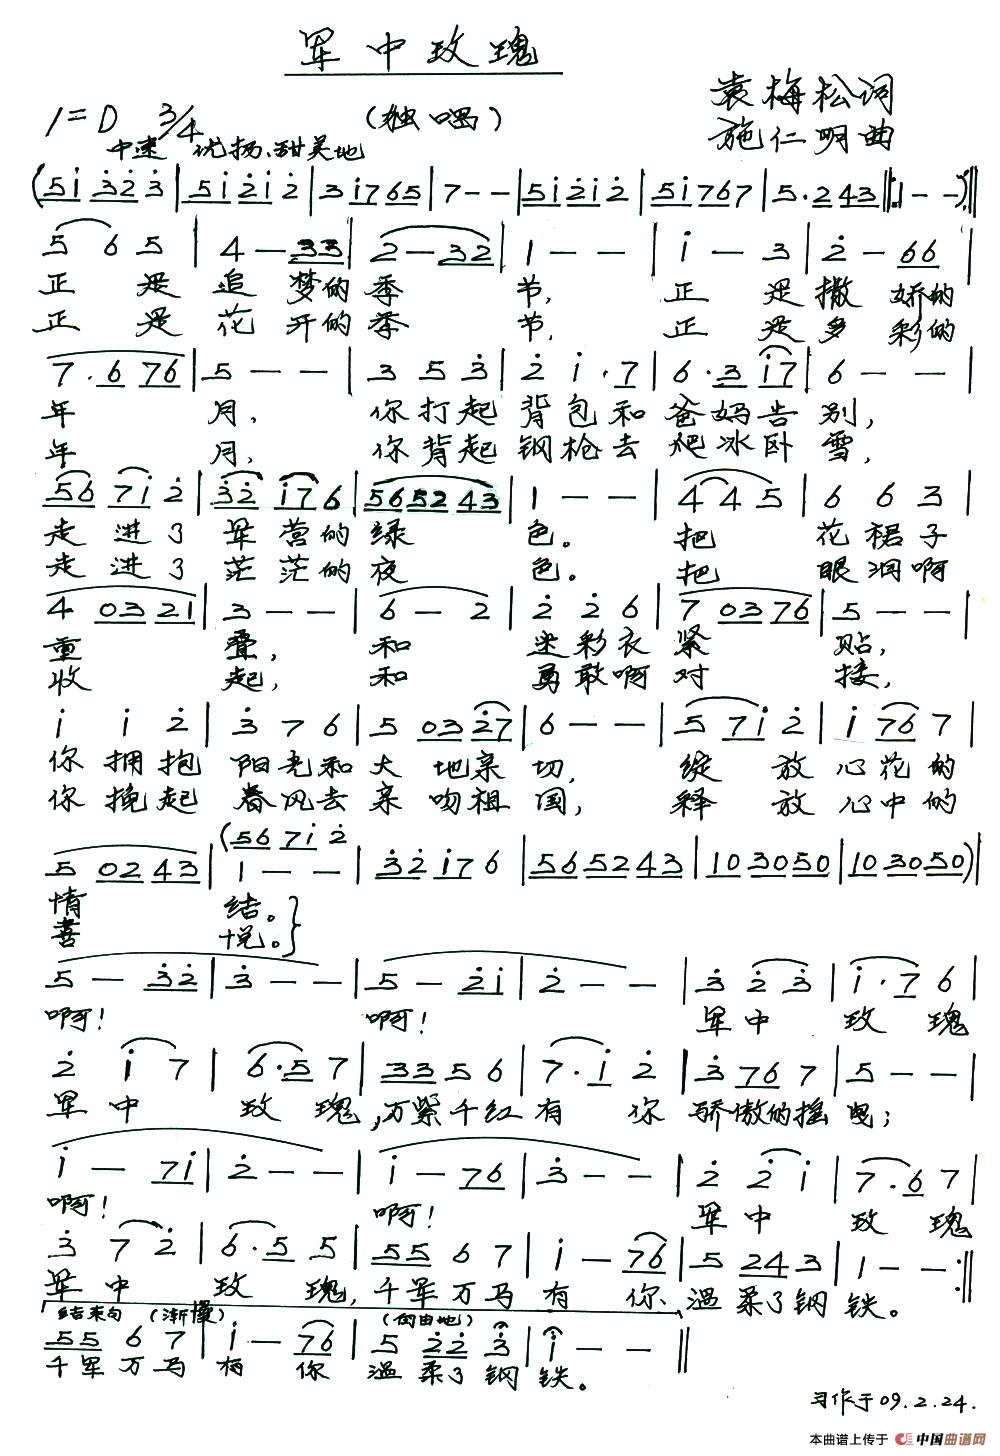 军中玫瑰
1=D 3/4
(独唱)
袁梅松词
施仁明曲
中速 优扬、甜美地
正是追梦的季节,正是撒娇的
正是花开的季节,正是多彩的
年月,你打起背包和爸妈告别,
年月,你背起钢枪去爬冰卧雪,
走进了军营的绿色。把花裙子
走进了茫茫的夜色。把眼泪啊
重叠,和迷彩衣紧贴,
收起,和勇敢啊对接,
你拥抱阳光和大地亲切,绽放心花的
你挽起春风去亲吻祖国,释放心中的
情结。
喜悦。
啊!啊!军中玫瑰
军中玫瑰,万紫千红有你骄傲的摇曳;
啊!啊!军中玫瑰
军中玫瑰,千军万马有你、温柔了钢铁。
结束句 (渐慢) (自由地)
千军万马有你温柔了钢铁。
习作于09.2.24.
本曲谱上传于 中国曲谱网